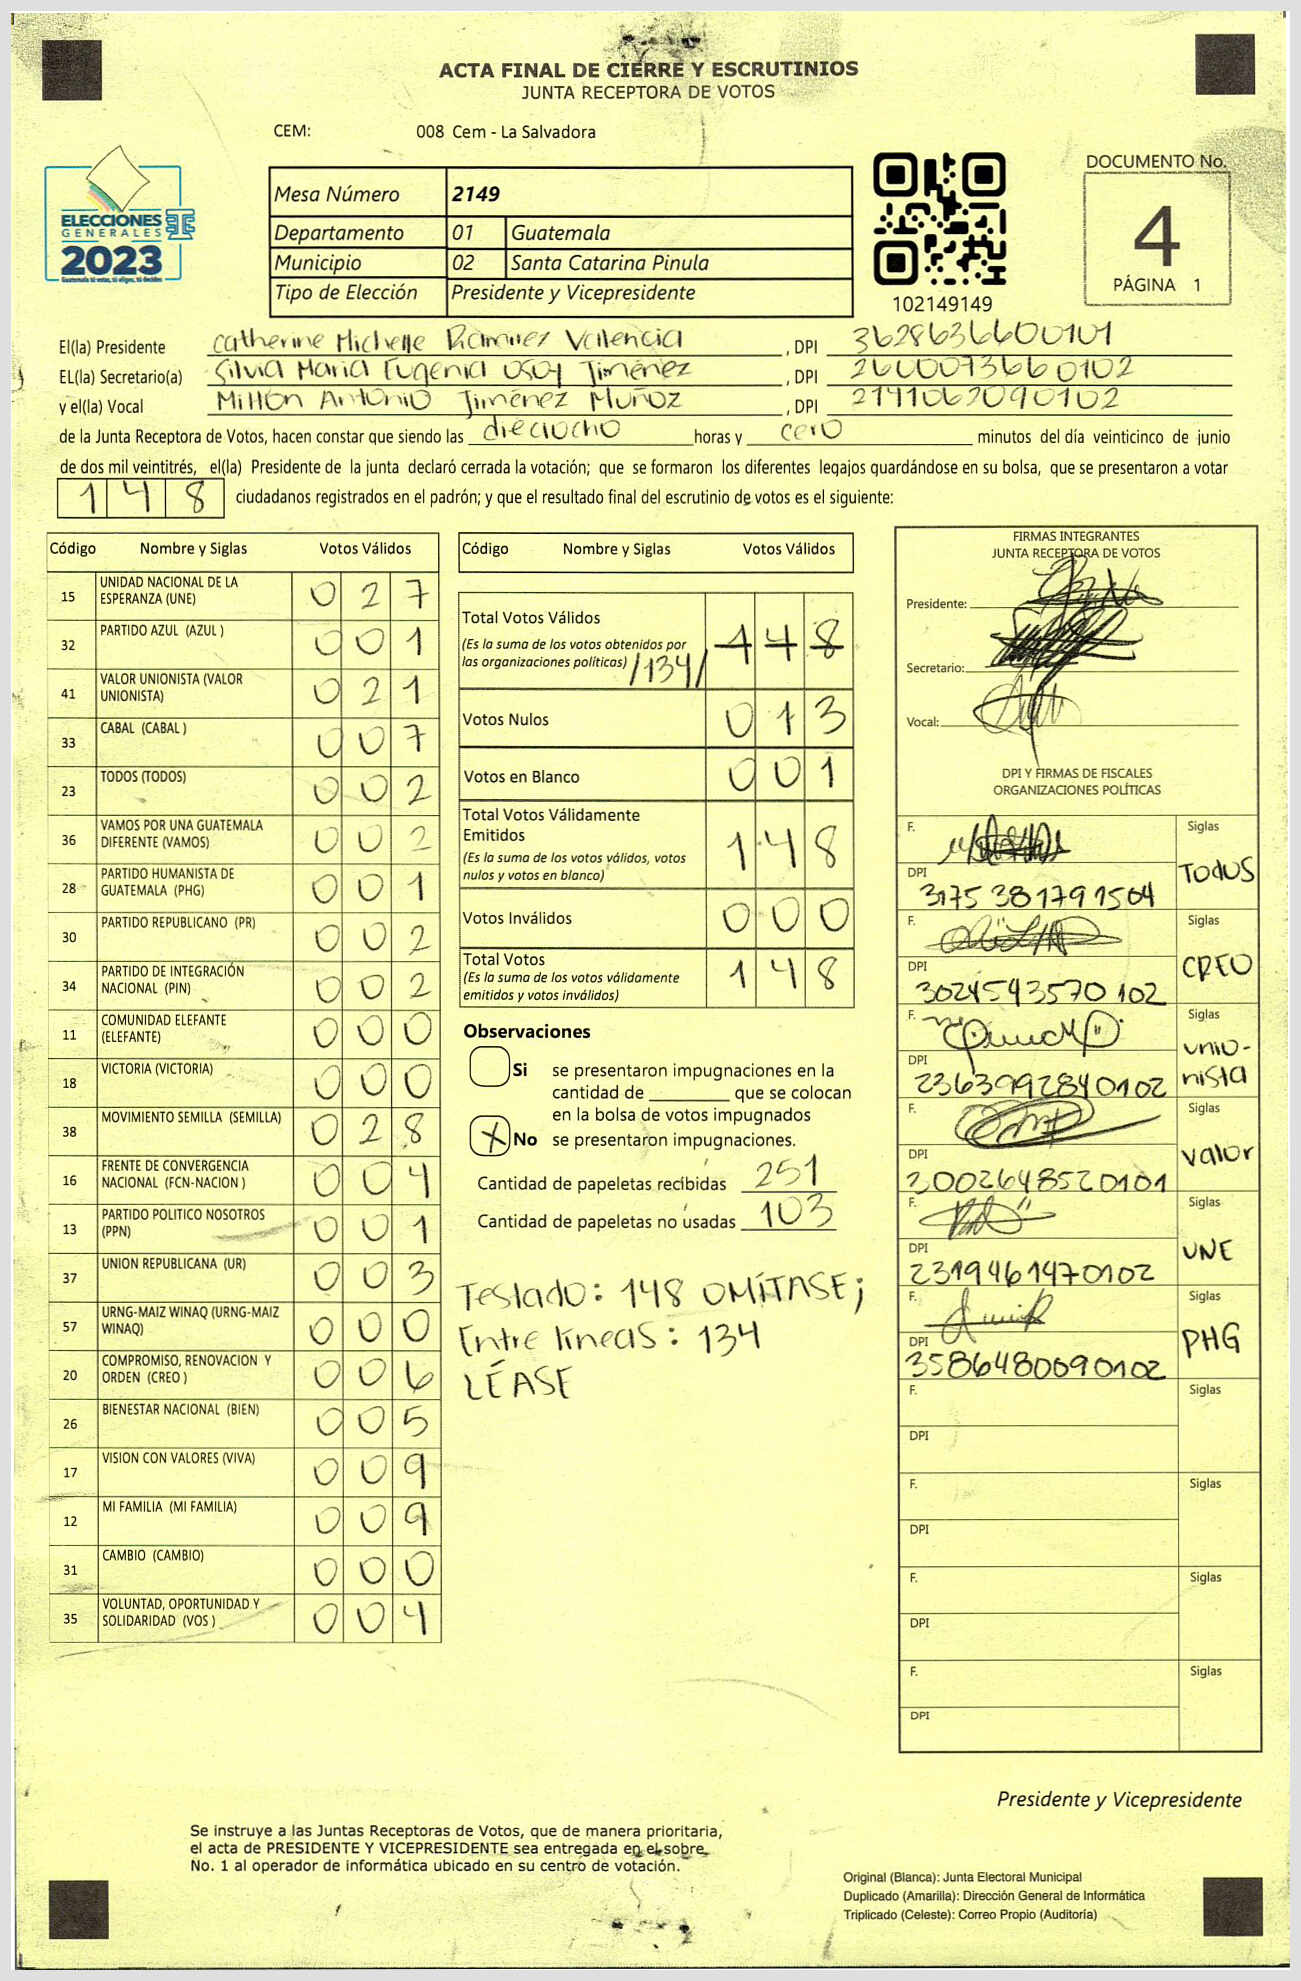 ACTA FINAL DE CIERRE Y ESCRUTINIOS
JUNTA RECEPTORA DE VOTOS
CEM: 008 Cem - La Salvadora
ELECCIONES
GENERALES
2023
Mesa Número 2149
Departamento 01 Guatemala
Municipio 02 Santa Catarina Pinula
Tipo de Elección Presidente y Vicepresidente
102149149
DOCUMENTO No.
4
PÁGINA 1
El(la) Presidente Catherine Michelle Ramirez Valencia , DPI 3628636600101
EL(la) Secretario(a) Silvia Maria Eugenia Osoy Jiménez , DPI 2600073660102
y el(la) Vocal Milton Antonio Jiménez Muñoz , DPI 2141062090102
de la Junta Receptora de Votos, hacen constar que siendo las dieciocho horas y cero minutos del día veinticinco de junio
de dos mil veintitrés, el(la) Presidente de la junta declaró cerrada la votación; que se formaron los diferentes legajos guardándose en su bolsa, que se presentaron a votar
148 ciudadanos registrados en el padrón; y que el resultado final del escrutinio de votos es el siguiente:
Código Nombre y Siglas Votos Válidos
15 UNIDAD NACIONAL DE LA
ESPERANZA (UNE) 027
32 PARTIDO AZUL (AZUL ) 001
41 VALOR UNIONISTA (VALOR
UNIONISTA) 021
33 CABAL (CABAL ) 007
23 TODOS (TODOS) 002
36 VAMOS POR UNA GUATEMALA
DIFERENTE (VAMOS) 002
28 PARTIDO HUMANISTA DE
GUATEMALA (PHG) 001
30 PARTIDO REPUBLICANO (PR) 002
34 PARTIDO DE INTEGRACIÓN
NACIONAL (PIN) 002
11 COMUNIDAD ELEFANTE
(ELEFANTE) 000
18 VICTORIA (VICTORIA) 000
38 MOVIMIENTO SEMILLA (SEMILLA) 028
16 FRENTE DE CONVERGENCIA
NACIONAL (FCN-NACION ) 004
13 PARTIDO POLITICO NOSOTROS
(PPN) 001
37 UNION REPUBLICANA (UR) 003
57 URNG-MAIZ WINAQ (URNG-MAIZ
WINAQ) 000
20 COMPROMISO, RENOVACION Y
ORDEN (CREO ) 006
26 BIENESTAR NACIONAL (BIEN) 005
17 VISION CON VALORES (VIVA) 009
12 MI FAMILIA (MI FAMILIA) 009
31 CAMBIO (CAMBIO) 000
35 VOLUNTAD, OPORTUNIDAD Y
SOLIDARIDAD (VOS ) 004
Código Nombre y Siglas Votos Válidos
Total Votos Válidos 148
(Es la suma de los votos obtenidos por
las organizaciones políticas) /134/
Votos Nulos 013
Votos en Blanco 001
Total Votos Válidamente
Emitidos 148
(Es la suma de los votos válidos, votos
nulos y votos en blanco)
Votos Inválidos 000
Total Votos 148
(Es la suma de los votos válidamente
emitidos y votos inválidos)
Observaciones
Si se presentaron impugnaciones en la
cantidad de ________ que se colocan
en la bolsa de votos impugnados
X No se presentaron impugnaciones.
Cantidad de papeletas recibidas 251
Cantidad de papeletas no usadas 103
Testado: 148 OMÍTASE;
Entre líneas: 134
LÉASE
FIRMAS INTEGRANTES
JUNTA RECEPTORA DE VOTOS
Presidente:
Secretario:
Vocal:
DPI Y FIRMAS DE FISCALES
ORGANIZACIONES POLÍTICAS
F. Siglas
DPI 3175 38179 1504 TODUS
F. Siglas
DPI 3024543570102 CREO
F. Siglas
DPI 2363992840102 unio-
nista
F. Siglas
DPI 3002648520101 valor
F. Siglas
DPI 2319461470102 UNE
F. Siglas
DPI 3586480090102 PHG
F. Siglas
DPI
F. Siglas
DPI
F. Siglas
DPI
F. Siglas
DPI
Presidente y Vicepresidente
Se instruye a las Juntas Receptoras de Votos, que de manera prioritaria,
el acta de PRESIDENTE Y VICEPRESIDENTE sea entregada en el sobre
No. 1 al operador de informática ubicado en su centro de votación.
Original (Blanca): Junta Electoral Municipal
Duplicado (Amarilla): Dirección General de Informática
Triplicado (Celeste): Correo Propio (Auditoría)